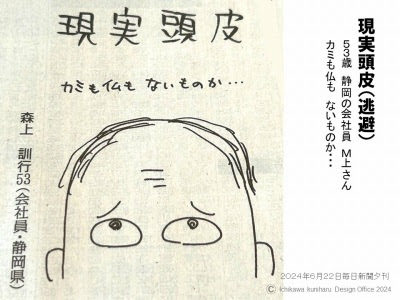 現実頭皮
カミも仏も ないものか…
森上 訓行53(会社員・静岡県)
現実頭皮(逃避)
53歳 静岡の会社員 M上さん
カミも仏も ないものか・・・
2024年6月22日毎日新聞夕刊
© Ichikawa kuniharu Design Office 2024